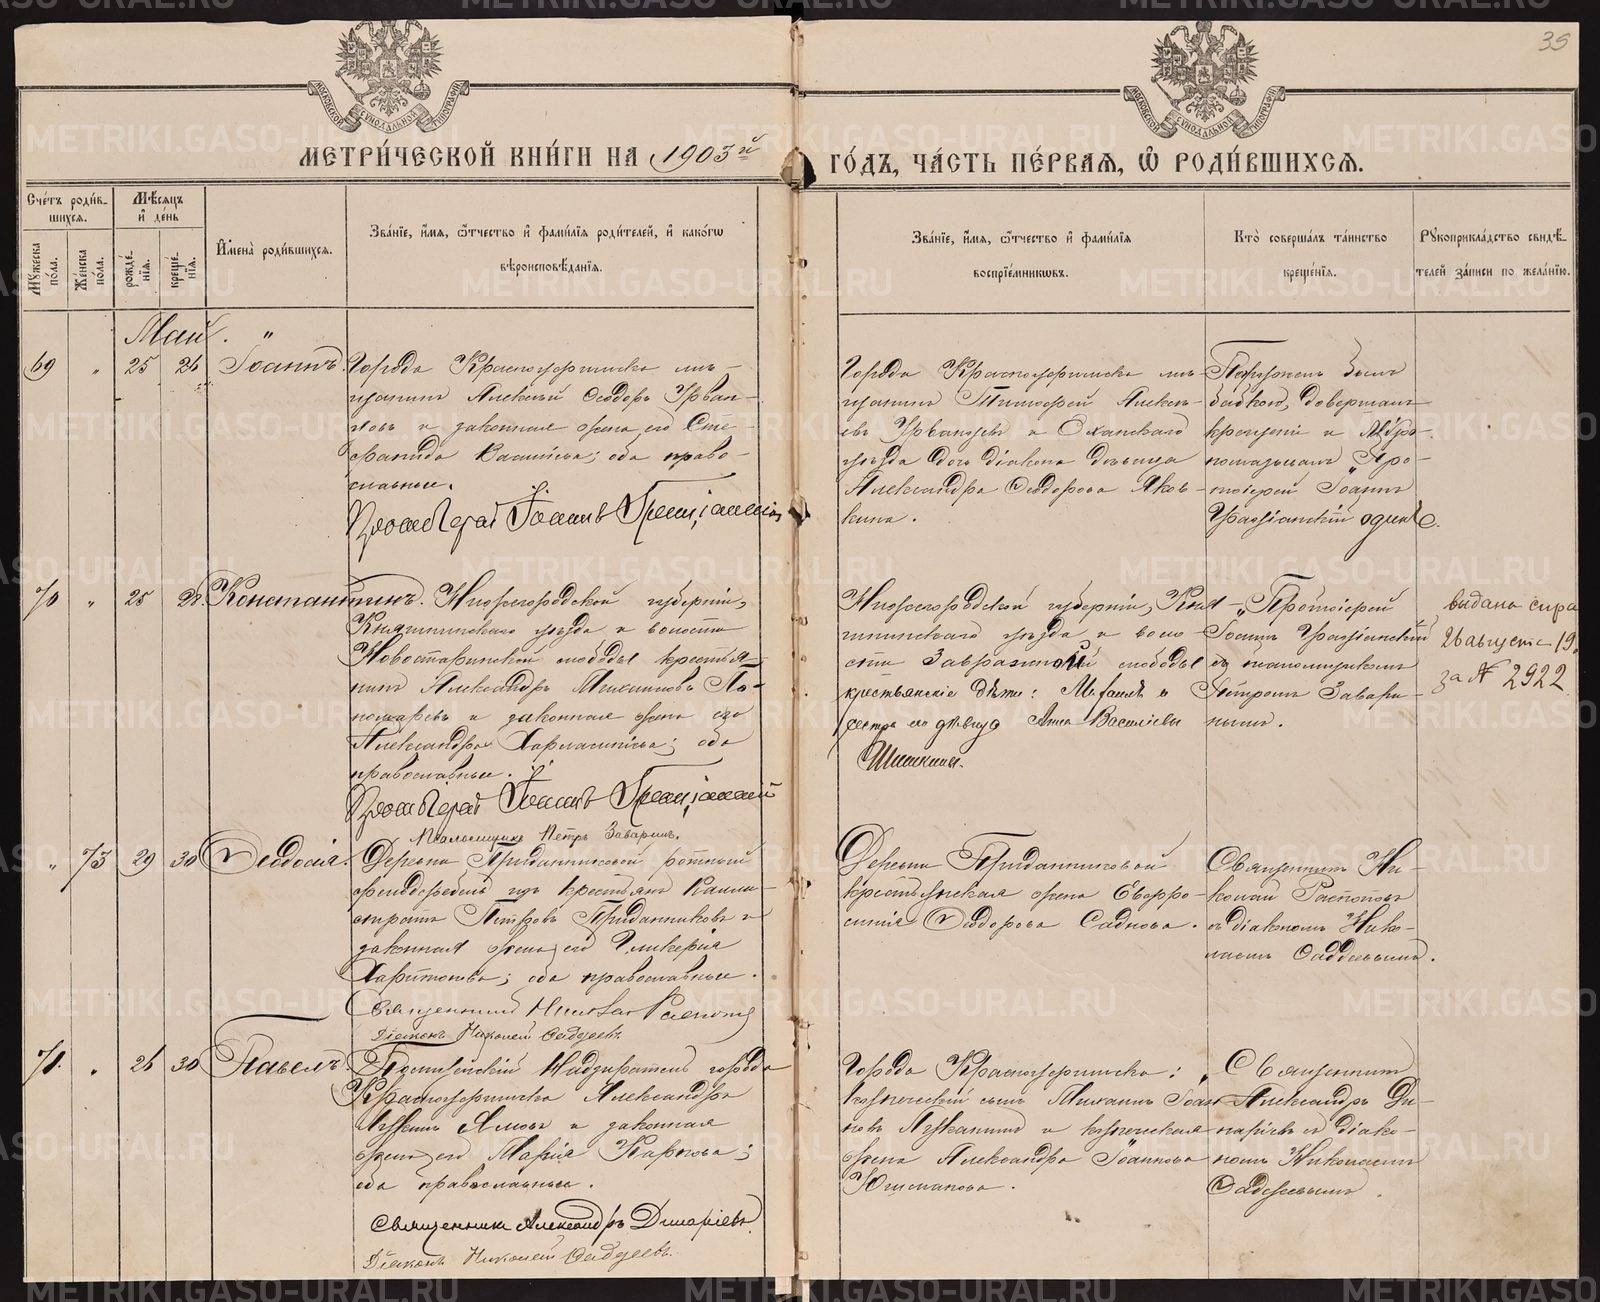 35
МОСКОВСКОЙ СѴНОДАЛЬНОЙ ТИПОГРАФІИ
МОСКОВСКОЙ СѴНОДАЛЬНОЙ ТИПОГРАФІИ
МЕТРИ́ЧЕСКОЙ КНИ́ГИ НА 1903й ГО́ДЪ, ЧА́СТЬ ПЕ́РВАЯ, Ѽ РОДИ́ВШИХСѦ.
Сче́тъ роди́вшихсѧ.
Мꙋ́жеска по́ла.
Же́нска по́ла.
Мѣ́сѧцъ и҆ де́нь
рожде́нїѧ.
креще́нїѧ.
И҆мена̀ роди́вшихсѧ.
Зва́нїе, и҆́мѧ, ѻ҆́тчество и҆ фами́лїѧ роди́телей, и҆ како́гѡ вѣроисповѣ́данїѧ.
Зва́нїе, и҆́мѧ, ѻ҆́тчество и҆ фами́лїѧ воспрїе́мникѡвъ.
Кто̀ соверша́лъ та́инство креще́нїѧ.
Рꙋкоприкла́дство свидѣ́телей за́писи по жела́нїю.
Май.
69 " 25 26 Іоаннъ.
Города Красноуфимска мѣ-
щанинъ Алексѣй Ѳеодоръ Урван-
цовъ и законная жена его Сте-
фанида Васильева; оба право-
славные.
Протоіерей Іоаннъ
Города Красноуфимска мѣ-
щанинъ Тимоѳей Алексѣ-
евъ Урванцевъ и Оханскаго
уѣзда дочь діакона дѣвица
Александра Ѳеодорова Яков-
кина.
Погружен былъ
бабкою, довершалъ
крещеніе и Мѵро-
помазывалъ Про-
тоіерей Іоаннъ
одинъ.
70 " 25 Константинъ.
Нижегородской губерніи,
Княгининскаго уѣзда и волости
слободы крестья-
нинъ Александръ По-
номаревъ и законная жена его
Александра Харлампіева; оба
православные.
Протоіерей Іоаннъ
Псаломщикъ Петръ Заваринъ.
Нижегородской губерніи, Княг-
ининскаго уѣзда и воло-
сти слободы
крестьянскіе дѣти: Михаилъ и
сестра его дѣвица Анна Васильевы
Шишкины.
Протоіерей
Іоаннъ
съ псаломщикомъ
Петромъ Завари-
нымъ.
выдана спра
26 августа 19
за № 2922
" 73 29 30 Ѳеодосія.
Деревни Приданниковой ротный
фельдфебель изъ крестьянъ Калли-
стратъ Петровъ Приданниковъ и
законная жена его Гликерія
Харитонова; оба православные.
Священникъ Николай
Діаконъ Николай Ѳаддеевъ.
Деревни Приданниковой
крестьянская жена Евфро-
синія Ѳеодорова Садкова.
Священникъ Ни-
колай
съ діакономъ Нико-
лаемъ Ѳаддеевымъ.
71. " 26 30 Павелъ.
Полицейскій Надзиратель города
Красноуфимска Александръ
и законная
жена его Марія Карпова;
оба православные.
Священникъ Александръ
Діаконъ Николай Ѳаддеевъ.
Города Красноуфимска:
купеческій сынъ Михаилъ Іоан-
новъ и купеческая
жена Александра Іоаннова
Священникъ
Александръ
съ діако-
номъ Николаемъ
Ѳаддеевымъ.
METRIKI.GASO-URAL.RU